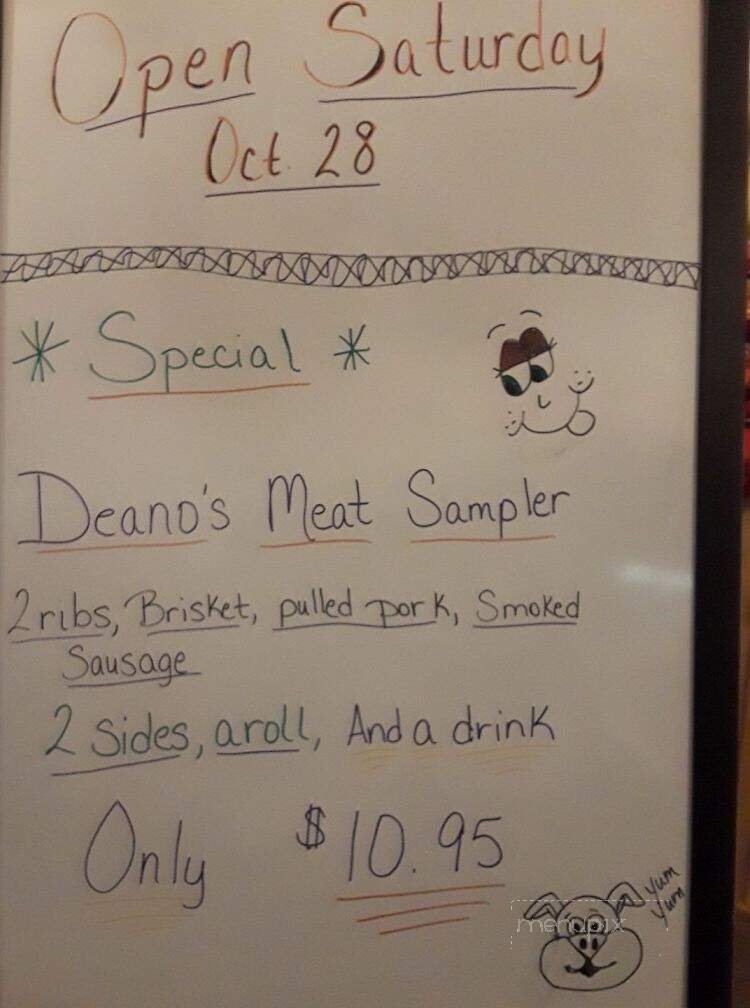 Open Saturday
Oct. 28
* Special *
Deano's Meat Sampler
2 ribs, Brisket, pulled pork, Smoked
Sausage
2 sides, a roll, And a drink
Only $10.95
yum
yum
menupix